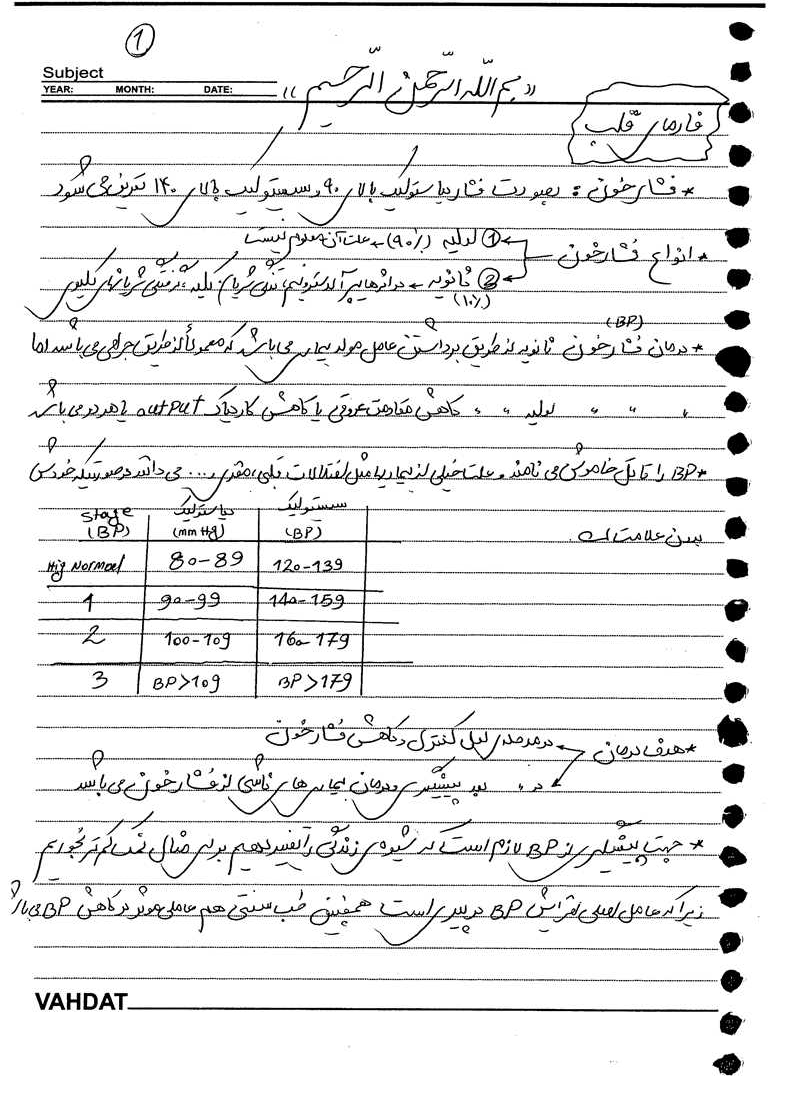 1
Subject
YEAR: MONTH: DATE:
«بسم اللّه الرّحمن الرّحیم»
فارمای قلب
* فشارخون : بصورت فشار دیاستولیک بالای ۹۰ و سیستولیک بالای ۱۴۰ تعریف می شود
* انواع فشارخون
1 اولیه (۹۰٪) → علت آن معلوم نیست
2 ثانویه → در اثر هایپر آلدسترونیم، تنگی شریان کلیه،
(۱۰٪)
(BP)
* درمان فشارخون ثانویه از طریق برداشتن عامل مولد بیماری می باشد که معمولاً از طریق جراحی می باشد اما
" " " اولیه " " کاهش مقاومت عروقی یا کاهش کاردیاک output یا هر دو می باشد
* BP را قاتل خاموش می نامند و علت خیلی از بیماریها مثل اختلالات قلبی، مغزی و ... می دانند درصورتیکه خودش
بدون علامت است.
Stage (BP) | دیاستولیک (mm Hg) | سیستولیک (BP)
Hig Normael | 80-89 | 120-139
1 | 90-99 | 140-159
2 | 100-109 | 160-179
3 | BP>109 | BP>179
* هدف درمان
درمرحله ی اول کنترل و کاهش فشارخون
در " بعد پیشگیری و درمان بیماری های ناشی از فشارخون می باشد
* جهت پیشگیری از BP لازم است که شیوه ی زندگی را تغییر دهیم برای مثال نمک کم تر بخوریم
زیرا که عامل اصلی افزایش BP در پیری است همچنین طب سنتی هم عاملی موثر در کاهش BP می باشد
VAHDAT